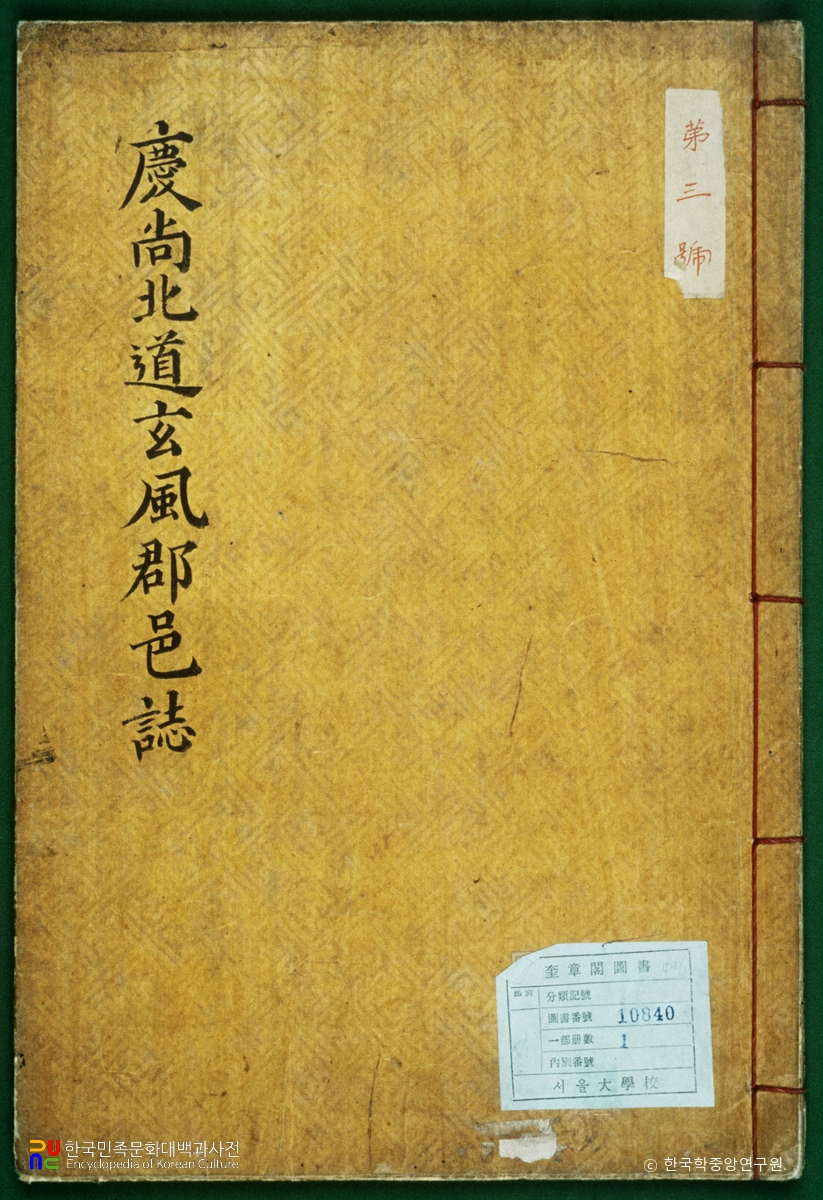 慶尙北道玄風郡邑誌
第三號
奎章閣圖書
部別
分類記號
圖書番號 10840
一部册數 1
內別番號
서울大學校
한국민족문화대백과사전
Encyclopedia of Korean Culture
© 한국학중앙연구원